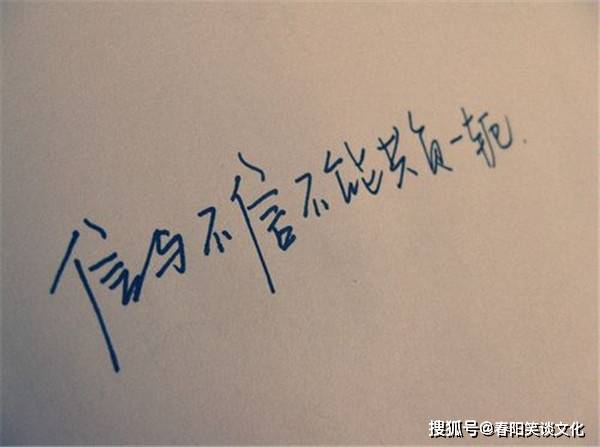 信与不信不能共负一轭.
搜狐号@春阳笑谈文化